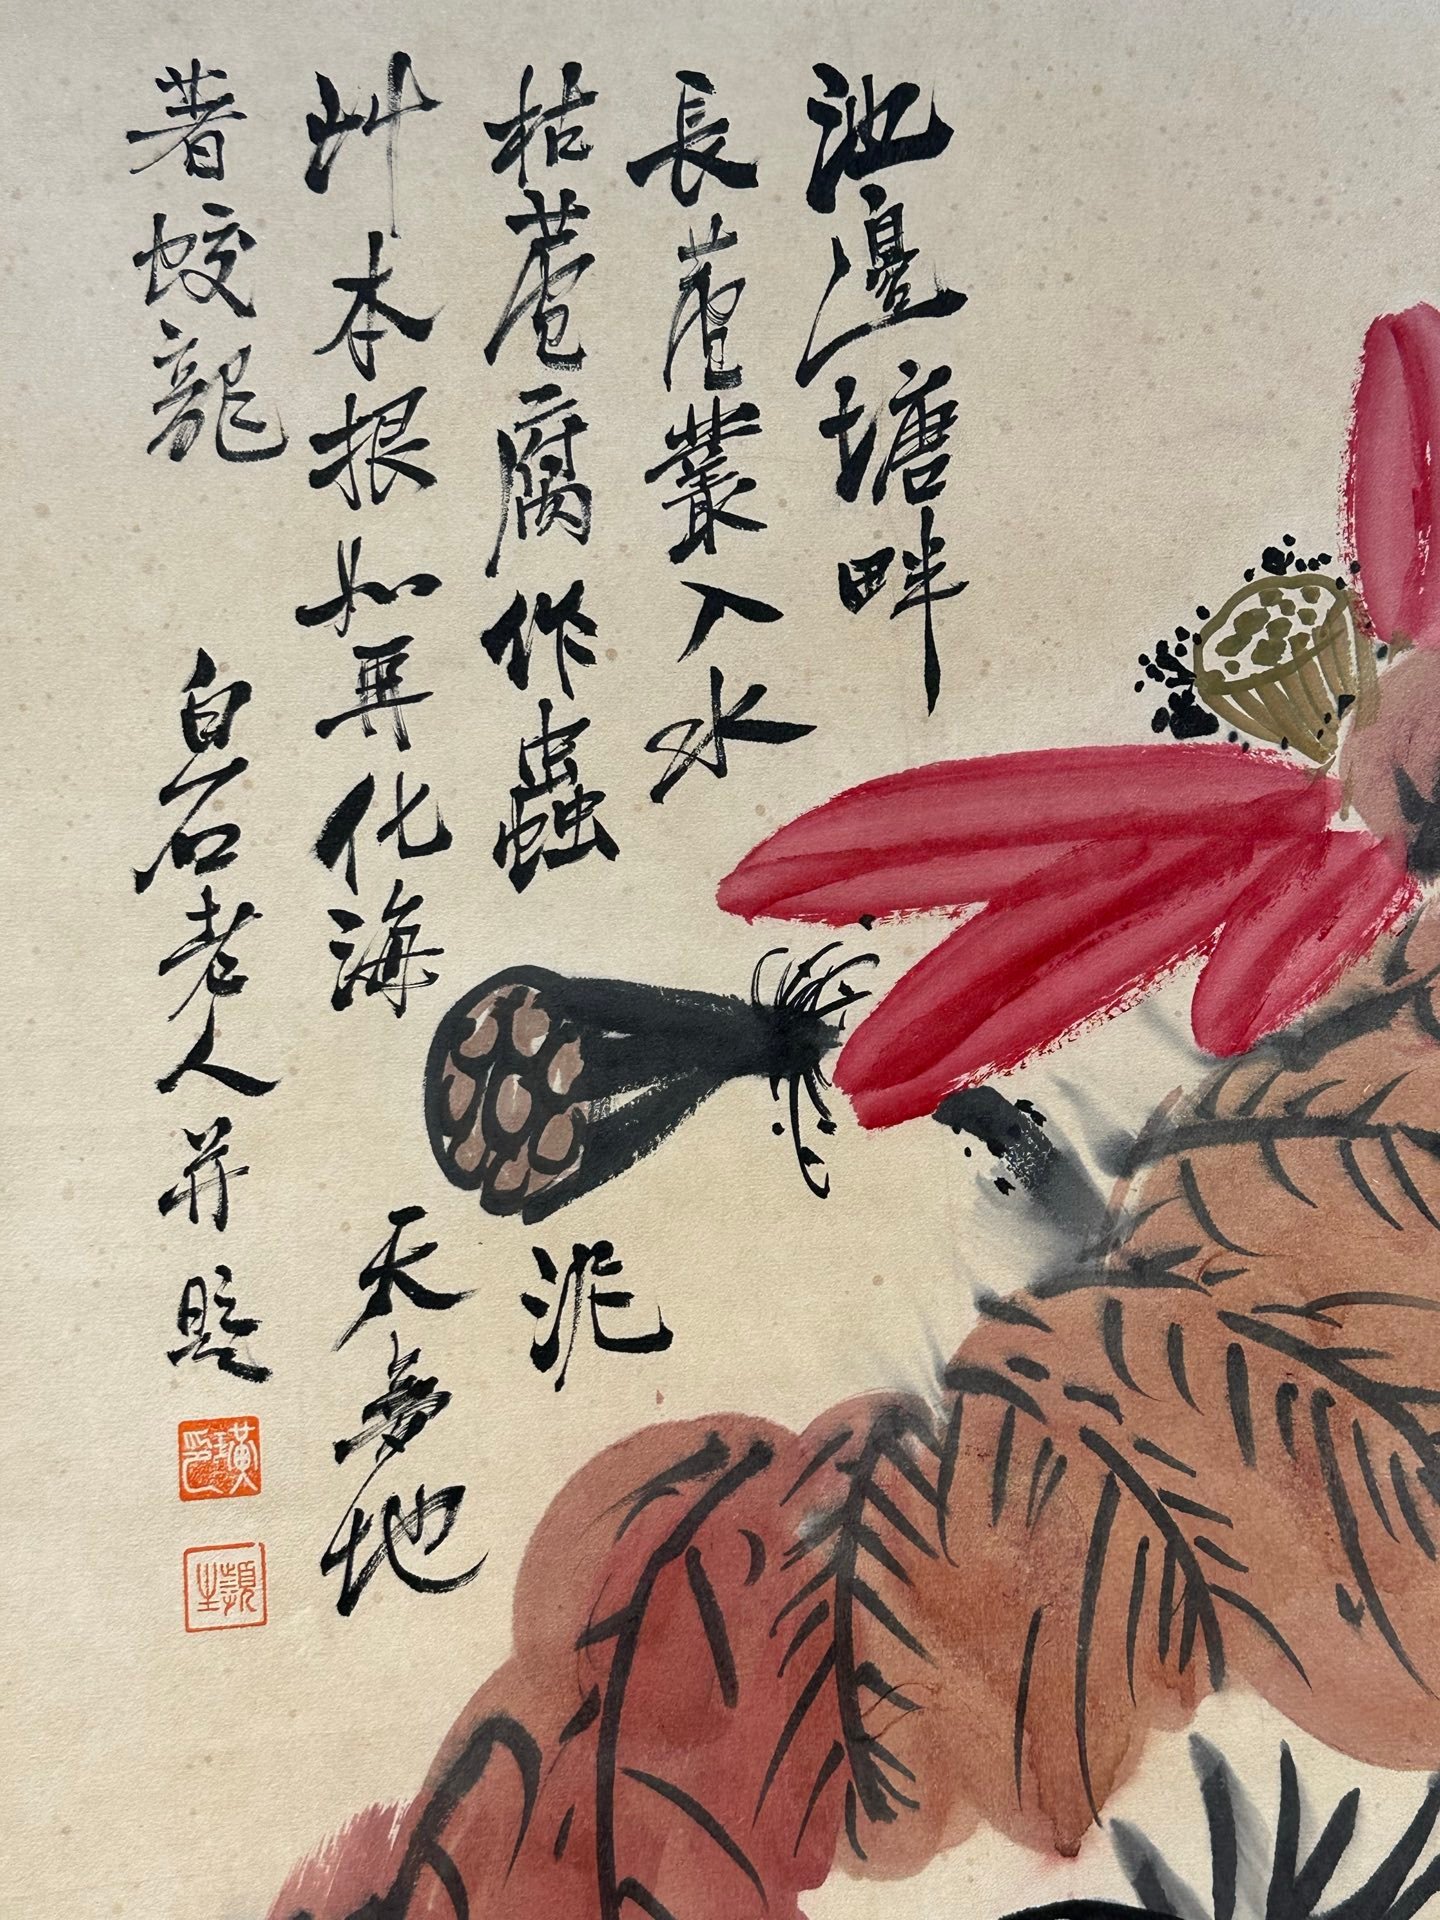 池邊塘畔
長蘆叢入水
枯蘆腐作蟲泥
艸本根如再化海天無地
著蛟龍
白石老人并題
瀕生